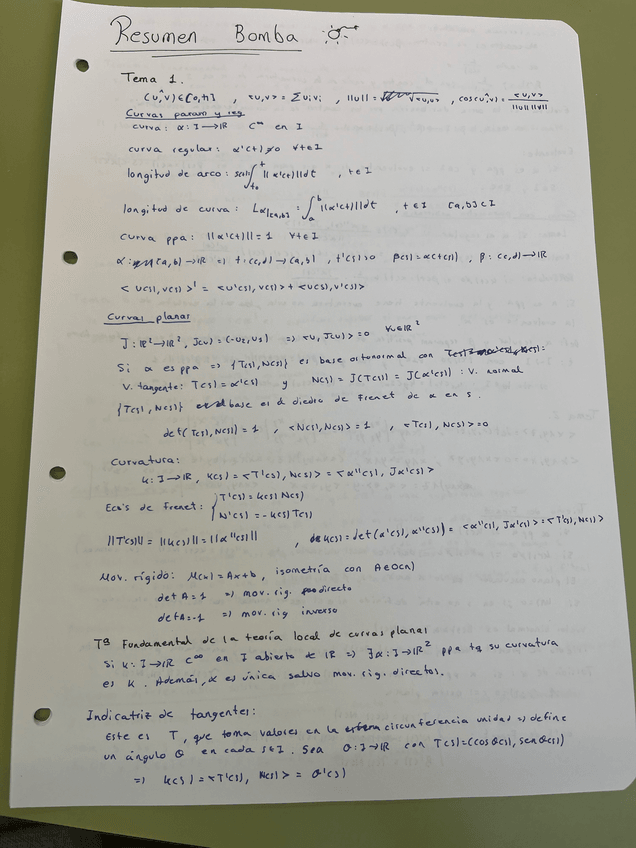 Resumen Bomba
Tema 1.
(u,^v) ∈ [0,π] , <u,v> = Σ uivi , ||u|| = √<u,u> , cos(u,^v) = <u,v> / ||u|| ||v||
Curvas param y reg
curva: α: I → IR C∞ en I
curva regular: α'(t) ≠ 0 ∀t ∈ I
longitud de arco: s(t) = ∫ₜ₀ᵗ ||α'(t)|| dt , t ∈ I
longitud de curva: Lα|[a,b] = ∫ₐᵇ ||α'(t)|| dt , t ∈ I [a,b] ⊂ I
curva ppa: ||α'(t)|| = 1 ∀t ∈ I
α: (a,b) → IR => t: (c,d) → (a,b) , t'(s) > 0 β(s) = α(t(s)) , β: (c,d) → IR
<u(s), v(s)>' = <u'(s), v(s)> + <u(s), v'(s)>
Curvas planas
J: IR² → IR² , J(u) = (-u₂, u₁) => <u, J(u)> = 0 ∀u ∈ IR²
Si α es ppa => {T(s), N(s)} es base ortonormal con
V. tangente: T(s) = α'(s) y N(s) = J(T(s)) = J(α'(s)) : V. normal
{T(s), N(s)} base es el diedro de Frenet de α en s.
det(T(s), N(s)) = 1 , <N(s), N(s)> = 1 , <T(s), N(s)> = 0
Curvatura:
k: I → IR , k(s) = <T'(s), N(s)> = <α''(s), Jα'(s)>
Ecs's de Frenet: { T'(s) = k(s) N(s)
N'(s) = -k(s) T(s)
||T'(s)|| = ||k(s)|| = ||α''(s)|| , k(s) = det(α'(s), α''(s)) = <α''(s), Jα'(s)> = <T'(s), N(s)>
Mov. rígido: M(x) = Ax+b , isometría con A ∈ O(n)
det A = 1 => mov. rig. directo
det A = -1 => mov. rig inverso
Tª Fundamental de la teoría local de curvas planas
Si k: I → IR C∞ en I abierto de IR => ∃ α: I → IR² ppa tq su curvatura
es k. Además, α es única salvo mov. rig. directos.
Indicatriz de tangentes:
Este es T, que toma valores en la circunferencia unidad => define
un ángulo θ en cada s ∈ I. Sea θ: I → IR con T(s) = (cos θ(s), sen θ(s))
=> k(s) = <T'(s), N(s)> = θ'(s)